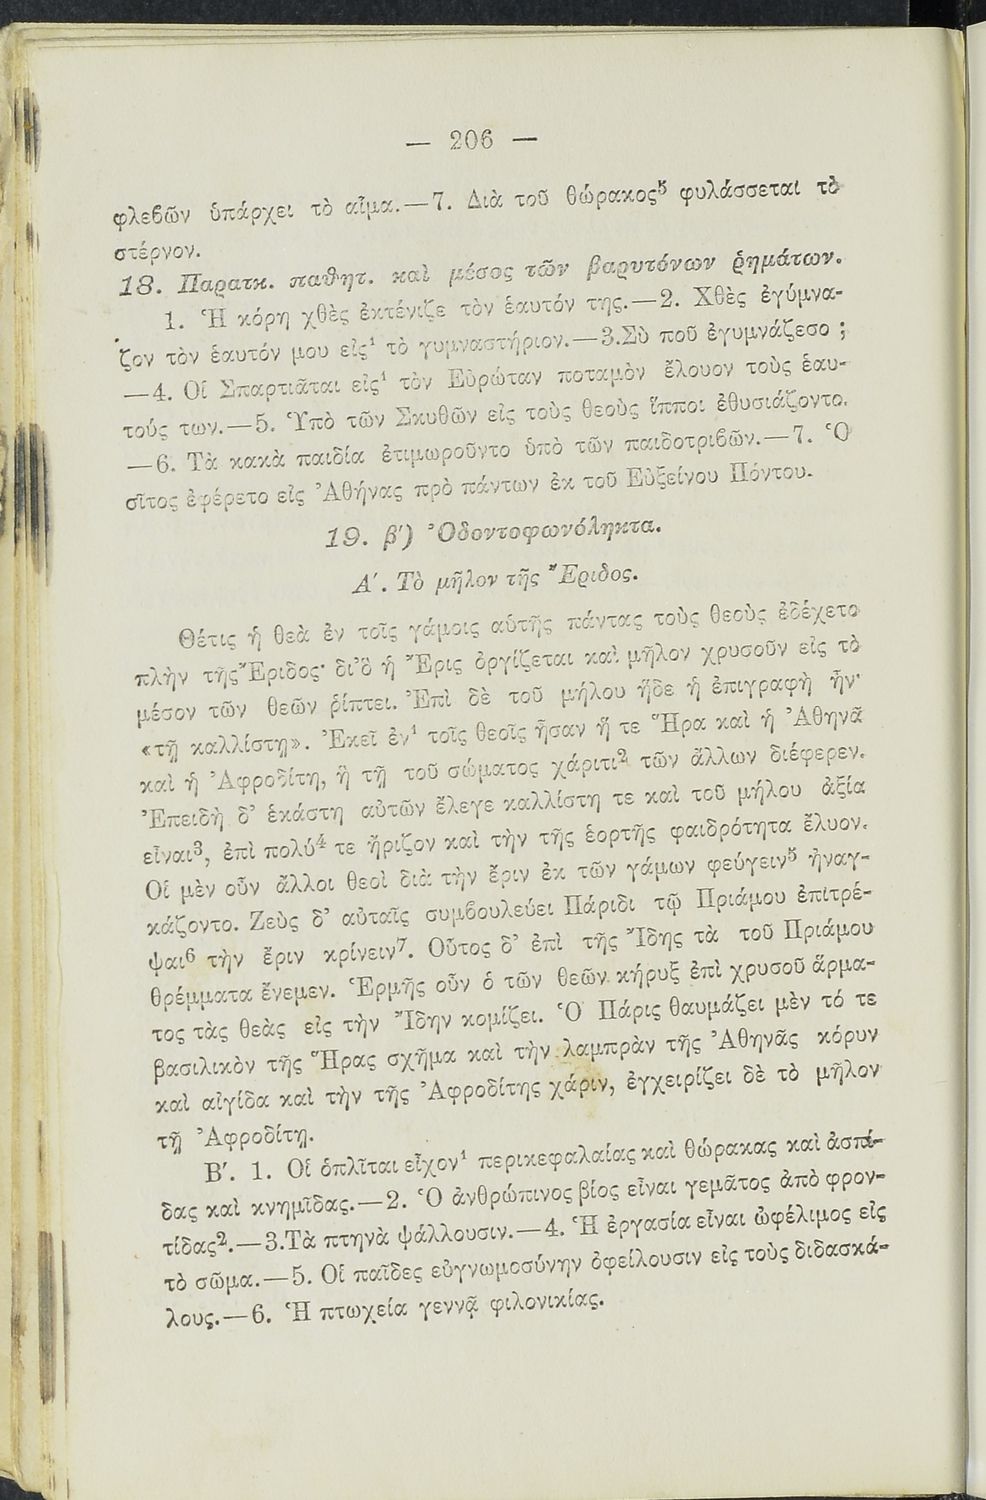 — 206 —
φλεβῶν ὑπάρχει τὸ αἷμα.—7. Διὰ τοῦ θώρακος⁵ φυλάσσεται τὸ
στέρνον.
18. Παρατκ. παθητ. καὶ μέσος τῶν βαρυτόνων ῥημάτων.
1. Ἡ κόρη χθὲς ἐκτένιζε τὸν ἑαυτόν της.—2. Χθὲς ἐγύμνα-
ζον τὸν ἑαυτόν μου εἰς¹ τὸ γυμναστήριον.—3.Σὺ ποῦ ἐγυμνάζεσο ;
—4. Οἱ Σπαρτιᾶται εἰς¹ τὸν Εὐρώταν ποταμὸν ἔλουον τοὺς ἑαυ-
τούς των.—5. Ὑπὸ τῶν Σκυθῶν εἰς τοὺς θεοὺς ἵπποι ἐθυσιάζοντο.
—6. Τὰ κακὰ παιδία ἐτιμωροῦντο ὑπὸ τῶν παιδοτριβῶν.—7. Ὁ
σῖτος ἐφέρετο εἰς Ἀθήνας πρὸ πάντων ἐκ τοῦ Εὐξείνου Πόντου.
19. β′) Ὀδοντοφωνόληκτα.
Α′. Τὸ μῆλον τῆς Ἔριδος.
Θέτις ἡ θεὰ ἐν τοῖς γάμοις αὑτῆς πάντας τοὺς θεοὺς ἐδέχετο
πλὴν τῆς Ἔριδος· δι’ὃ ἡ Ἔρις ὀργίζεται καὶ μῆλον χρυσοῦν εἰς τὸ
μέσον τῶν θεῶν ῥίπτει. Ἐπὶ δὲ τοῦ μήλου ἥδε ἡ ἐπιγραφὴ ἦν·
«τῇ καλλίστῃ». Ἐκεῖ ἐν¹ τοῖς θεοῖς ἦσαν ἥ τε Ἥρα καὶ ἡ Ἀθηνᾶ
καὶ ἡ Ἀφροδίτη, ἣ τῇ τοῦ σώματος χάριτι² τῶν ἄλλων διέφερεν.
Ἐπειδὴ δ’ ἑκάστη αὐτῶν ἔλεγε καλλίστη τε καὶ τοῦ μήλου ἀξία
εἶναι³, ἐπὶ πολύ⁴ τε ἤριζον καὶ τὴν τῆς ἑορτῆς φαιδρότητα ἔλυον.
Οἱ μὲν οὖν ἄλλοι θεοὶ διὰ τὴν ἔριν ἐκ τῶν γάμων φεύγειν⁵ ἠναγ-
κάζοντο. Ζεὺς δ’ αὐταῖς συμβουλεύει Πάριδι τῷ Πριάμου ἐπιτρέ-
ψαι⁶ τὴν ἔριν κρίνειν⁷. Οὗτος δ’ ἐπὶ τῆς Ἴδης τὰ τοῦ Πριάμου
θρέμματα ἔνεμεν. Ἑρμῆς οὖν ὁ τῶν θεῶν κήρυξ ἐπὶ χρυσοῦ ἅρμα-
τος τὰς θεὰς εἰς τὴν Ἴδην κομίζει. Ὁ Πάρις θαυμάζει μὲν τό τε
βασιλικὸν τῆς Ἥρας σχῆμα καὶ τὴν λαμπρὰν τῆς Ἀθηνᾶς κόρυν
καὶ αἰγίδα καὶ τὴν τῆς Ἀφροδίτης χάριν, ἐγχειρίζει δὲ τὸ μῆλον
τῇ Ἀφροδίτῃ.
Β′. 1. Οἱ ὁπλῖται εἶχον¹ περικεφαλαίας καὶ θώρακας καὶ ἀσπί-
δας καὶ κνημῖδας.—2. Ὁ ἀνθρώπινος βίος εἶναι γεμᾶτος ἀπὸ φρον-
τίδας².—3.Τὰ πτηνὰ ψάλλουσιν.—4. Ἡ ἐργασία εἶναι ὠφέλιμος εἰς
τὸ σῶμα.—5. Οἱ παῖδες εὐγνωμοσύνην ὀφείλουσιν εἰς τοὺς διδασκά-
λους.—6. Ἡ πτωχεία γεννᾷ φιλονικίας.